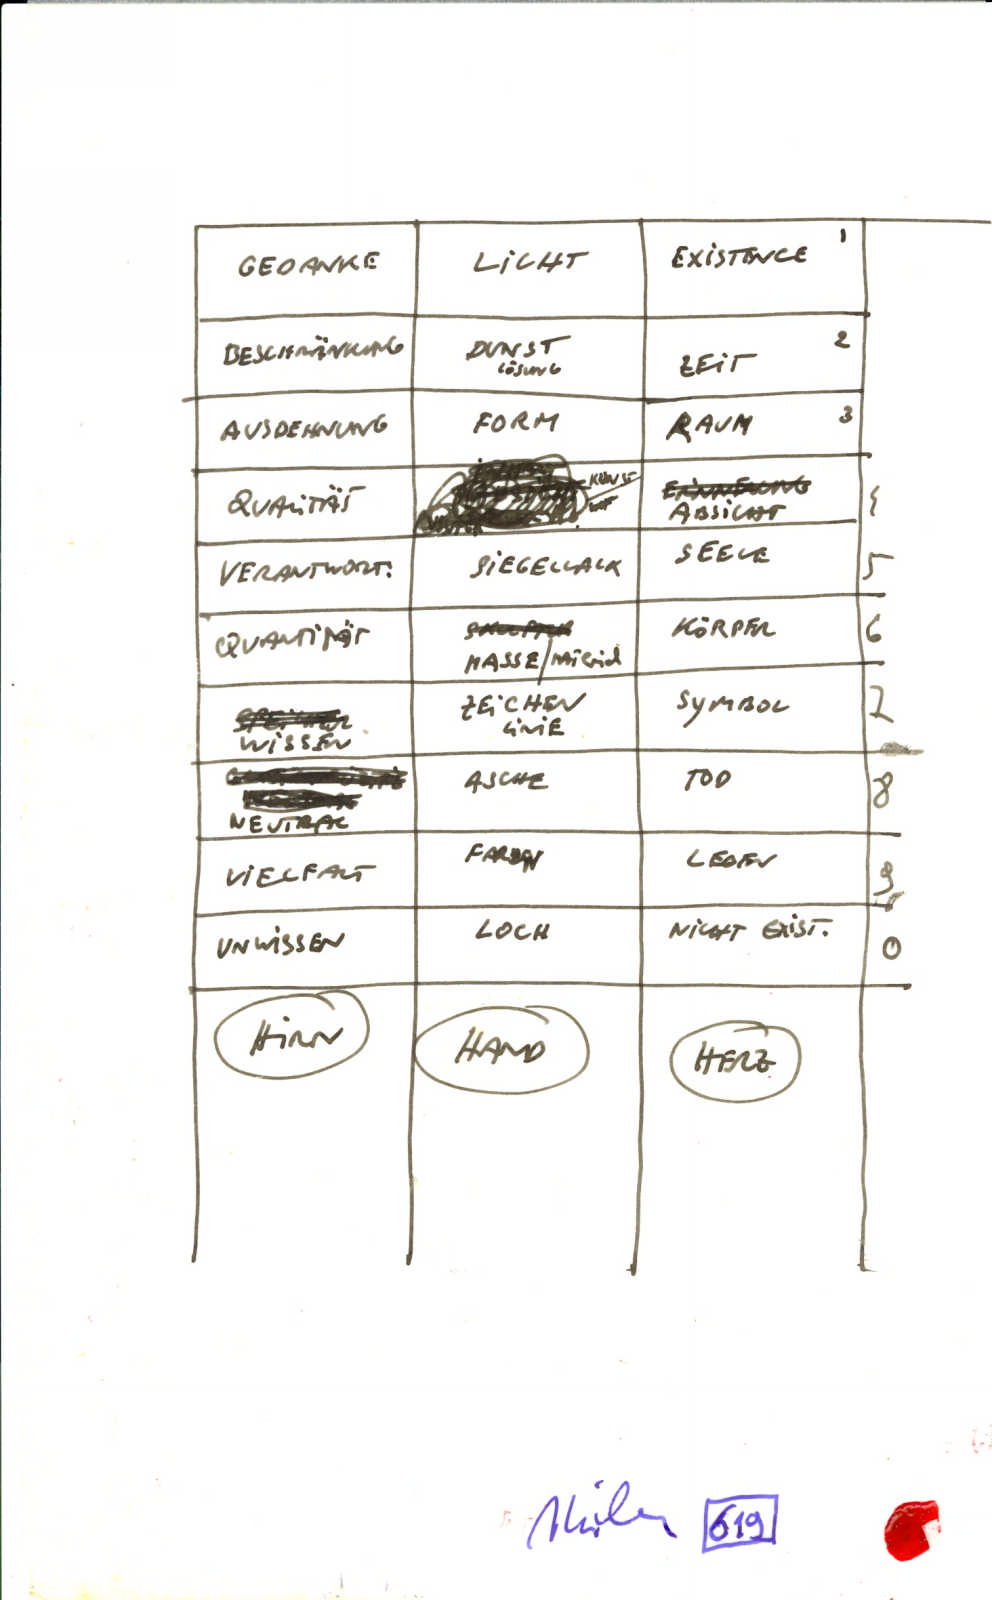 GEDANKE LICHT EXISTENCE 1
BESCHRÄNKUNG DUNST ZEIT 2
LÖSUNG
AUSDEHNUNG FORM RAUM 3
QUALITÄT KUNST ERINNERUNG 4
ABSICHT
VERANTWORT. SIEGELLACK SEELE 5
QUANTITÄT KÖRPER 6
MASSE/
ZEICHEN SYMBOL 7
LINIE
SPEICHER
WISSEN
ASCHE TOD 8
NEUTRAL
VIELFALT FARBEN LEBEN 9
UNWISSEN LOCH NICHT EXIST. 0
HIRN HAND HERZ
619